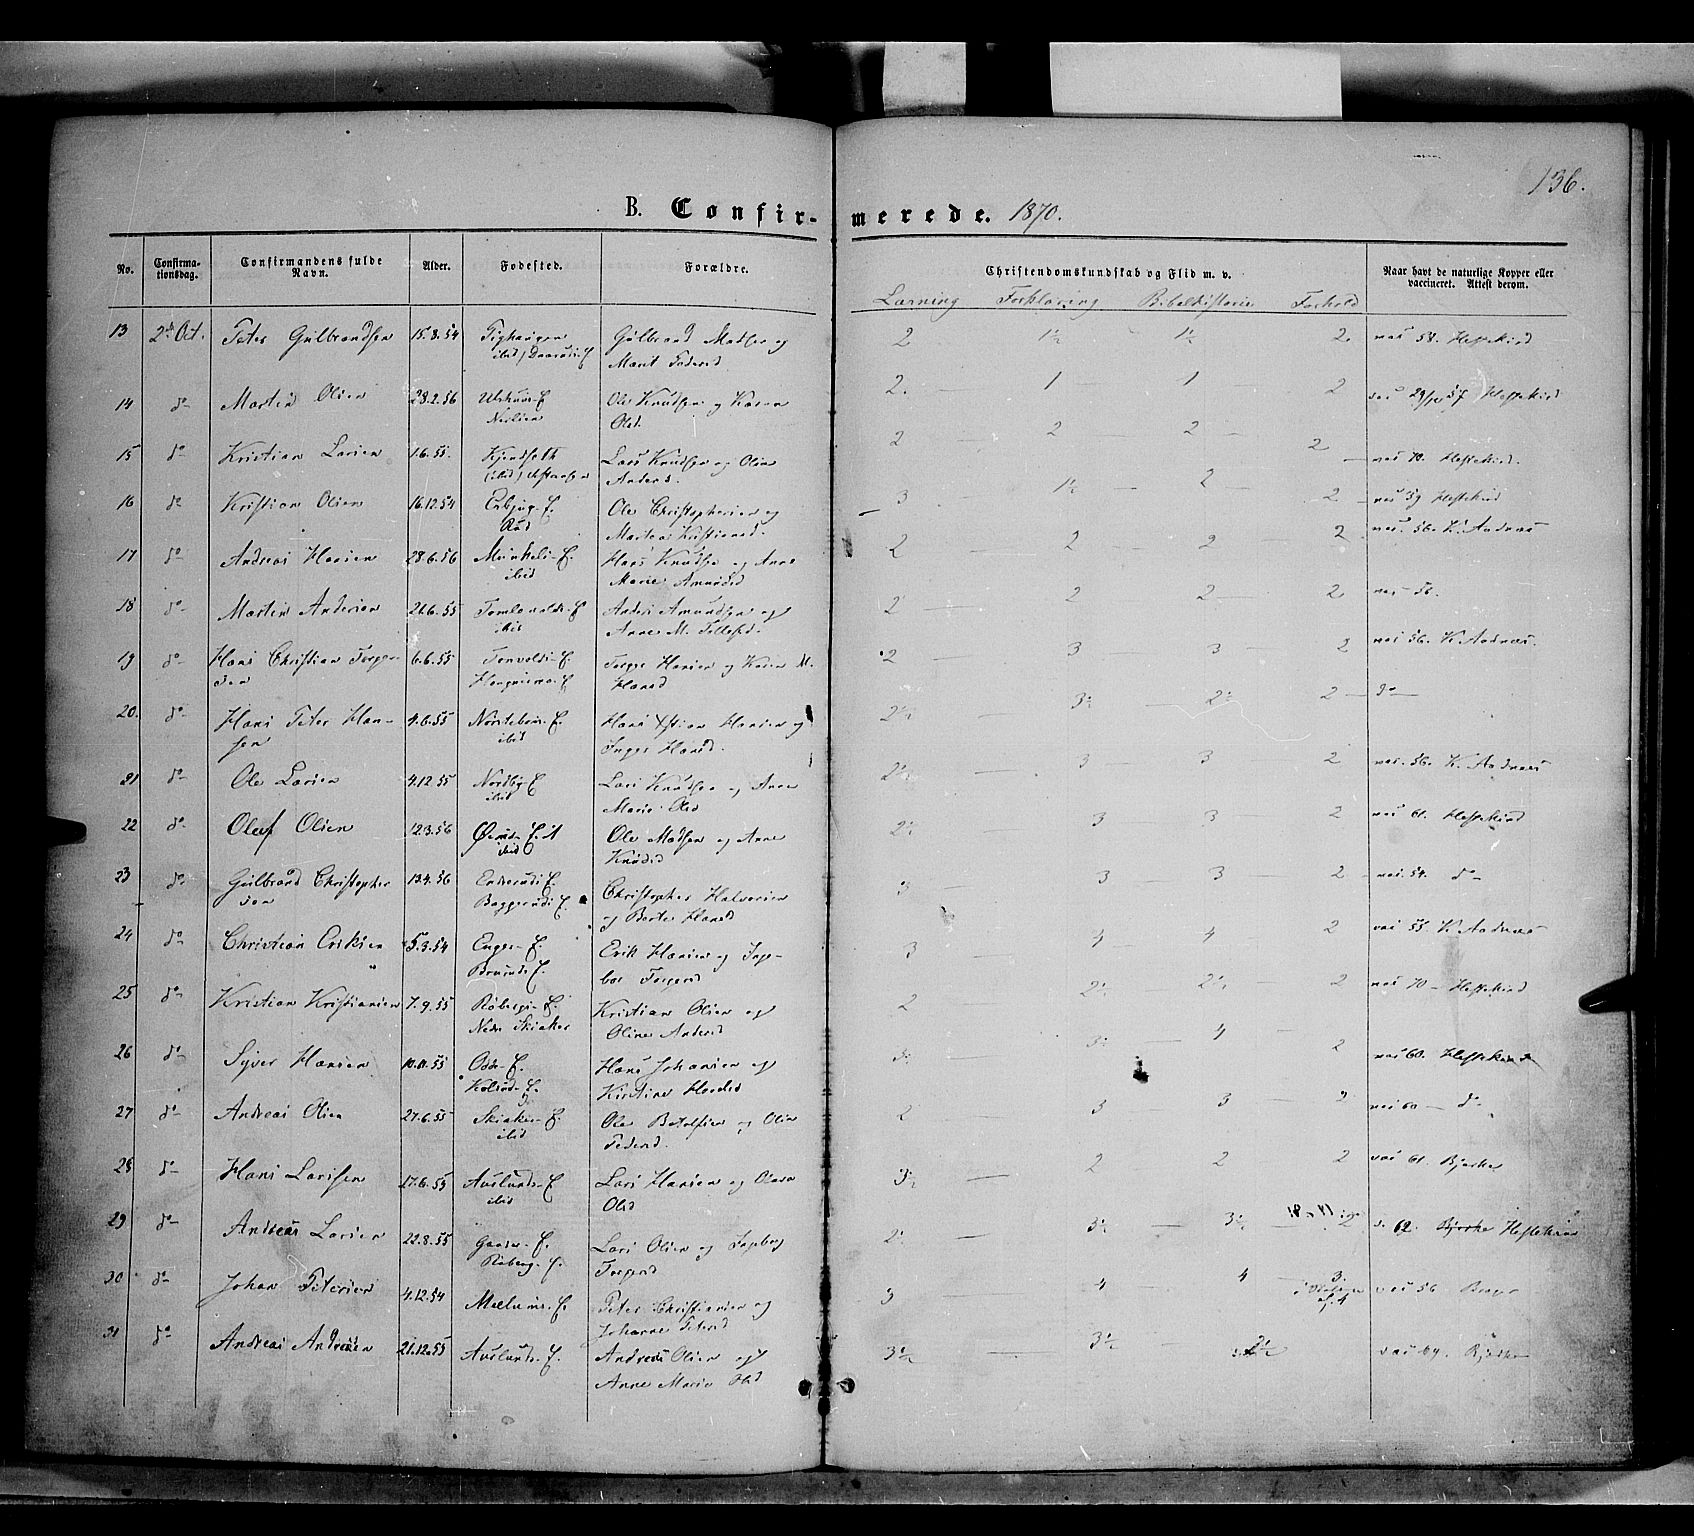 136.
B. Confir- merede. 1870.
No. Confirma-tionsdag. Confirmandens fulde Navn. Alder. Fødested. Forældre. Christendomskundskab og Flid m. v. Naar havt de naturlige Kopper eller vaccineret. Attest derom.
Læsning Forklaring Bibelhistorie Forhold
13 2d Oct. Peter Gulbrandsen 15.8.54 Gulbrand Madsen og 2 1½ 1½ 2 vac 58. Heftekind
ibid
Marit Pedersd.
14 do Martin Olsen 28.2.56 Ole Knudsen og Karen 2. 1 1 2 vac 29/10 57 Heftekind
Olsd.
15 do Kristian Larsen 1.6.55. Kjendseth Lars Knudsen og Oline 2 2 2 2 vac 70. Heftekind.
(ibid) Andersd.
16 do Kristian Olsen 16.12.54 Ole Christophersen og 3 1½ 2 2 vac 59 Heftekind
Rud Martea Kristiansd.
17 do Andreas Hansen 28.6.56 Hans Knudsen og Anne 2 2 2 2 vac. 56. K. Aadnæs
ibid Marie Amundsd
18 do Martin Andersen 21.6.55 Tomlevolds-E. Anders Amundsen og 2 2 2 2 vac 56.
ibid Anne M. Tollefsd.
19 do Hans Christian Torger- 6.6.55 Tonvolds-E. Torger Hansen og Karen M. 2 3 3 2 vac 56. K. Aadnæs.
sen Hansd
20. do Hans Peter Han- 4.6.55 Norstebrus-E. Hans Xstian Hansen og 2½ 3½ 2½ 2 do
sen ibid Inger Hansd.
21 do Ole Larsen 4.12.55 Nordby-E Lars Knudsen og Anne 2½ 3 3 2 vac. 56. K. Aadnæs
ibid Marie Olsd
22 do Oluf Olsen 12.3.56 Ole Madsen og Anne 2½ 3 3 2 vac 61. Heftekind
ibid Knudsd
23 do Gulbrand Christopher 13.4.56 Enderuds E. Christopher Halvorsen 3 3 3 2 vac. 54. do
sen Baggeruds E. og Berte Hansd
24 do Christian Eriksen 5.3.54 Enger-E. Erik Hansen og Inge- 3 4 4 2 vac 55. K. Aadnæs
Bruunds E. bor Torgersd
25 do Kristian Kristiansen 7.9.55 Røbergs-E. Kristian Olsen og 2 2½ 2½ 2 vac 70 - Heftekind
Nedre Skiaker Oline Andersd
26 do Syver Hansen 10.11.55 Odde-E. Hans Johansen og 3½ 3½ 4 2 vac 60. Heftekind
Kirstine
27 do Andreas Olsen 27.6.55 Skiaker-E. Ole Botolfsen og Oline 2 3 3 2 vac 60 - do
ibid Pedersd.
28 do Hans Larssen 17.6.55 Auslunds-E Lars Hansen og Olava 3½ 2 2 2 vac 61. Bjerke
ibid Olsd
29 do Andreas Larsen 22.8.55 Gaarder-E. Lars Olsen og Ingeborg 2½ 3½ 3½ 2 v. 62. Bjerke Heftekind
Røberg-E. Torgersd
30 do Johan Petersen 4.12.54 Mællums-E. Peter Christiansen og 3 4 4 3. vac 56 Berge
Johanne Petersd
31 do Andreas Andresen 21.12.55 Auslunds-E. Andreas Olsen og 3½ 3½ 2½ vac 69. Bjerke
Anne Marie Olsd